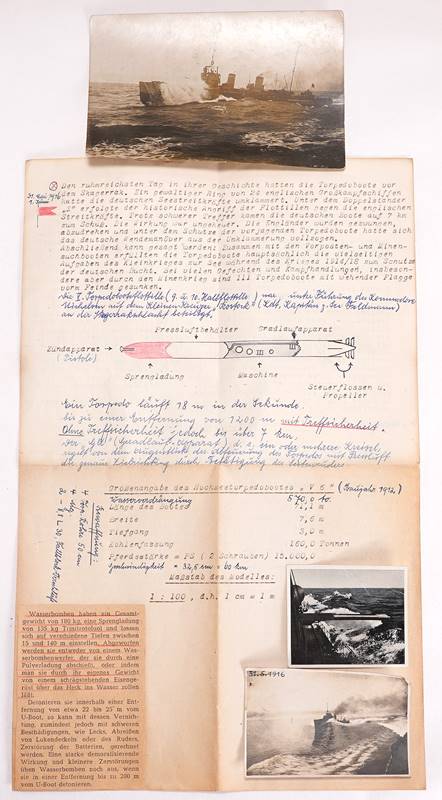 31. Mai 1916
1. Juni
Den ruhmreichsten Tag in ihrer Geschichte hatten die Torpedoboote vor
dem Skagerrak. Ein gewaltiger Ring von 26 englischen Großkampfschiffen
hatte die deutschen Seestreitkräfte umklammert. Unter dem Doppelständer
"Z" erfolgte der historische Angriff der Flottillen gegen die englischen
Streitkräfte. Trotz schwerer Treffer kamen die deutschen Boote auf 7 km
zum Schuß. Die Wirkung war ungeheuer. Die Engländer wurden gezwungen
abzudrehen und unter dem Schutze der vorjagenden Torpedoboote hatte sich
das deutsche Wendemanöver aus der Umklammerung vollzogen.
Abschließend kann gesagt werden: Zusammen mit den Vorposten- und Minen-
suchbooten erfüllten die Torpedoboote hauptsächlich die vielseitigen
Aufgaben des Kleinkrieges zur See während des Krieges 1914/18 zum Schutze
der deutschen Bucht. Bei vielen Gefechten und Kampfhandlungen, insbeson-
dere aber durch den Minenkrieg sind 111 Torpedoboote mit wehender Flagge
vorm Feinde gesunken.
die V. Torpedobootsflottille (9. u 10. Halbflottille) war unter Führung des Kommodore
Michelsen auf dem Kleinen Kreuzer "Rostock" (Kdt. Kapitän z. See Feldmann)
an der Skagerrakschlacht beteiligt.
Pressluftbehälter Gradlaufapparat
Zündapparat
(Pistole)
Sprengladung Maschine
Steuerflossen u.
Propeller
Ein Torpedo läuft 18 m in der Sekunde.
bis zu einer Entfernung von 1200 m mit Treffsicherheit.
Ohne Treffsicherheit jedoch bis über 7 km.
Der "GA" (Geradlauf-Apparat) d. s. ein oder mehrere Kreisel,
regelt von dem Augenblick der Absteuerung des Torpedos mit Pressluft
die genaue Zielrichtung durch Betätigung des Seitenruders
Größenangabe des Hochseetorpedobootes "V 6" (Baujahr 1912)
Wasserverdrängung 570,0 to.
Länge des Bootes 71,1 m
Breite 7,6 m
Tiefgang 3,0 m
Kohlenfassung 160,0 Tonnen
Pferdestärke = PS ( 2 Schrauben) 15.000,0
Geschwindigkeit = 32,6 sm = 60 km
Maßstab des Modelles:
1 : 100 , d.h. 1 cm = 1 m
Bewaffnung:
4 Torp. Rohre 50 cm
4 Mg.
Wasserbomben haben ein Gesamt-
gewicht von 180 kg, eine Sprengladung
von 135 kg Trinitrotoluol und lassen
sich auf verschiedene Tiefen zwischen
15 und 140 m einstellen. Abgeworfen
werden sie entweder von einem Was-
serbombenwerfer, der sie durch eine
Pulverladung abschießt, oder indem
man sie durch ihr eigenes Gewicht
von einem schrägstehenden Eisenge-
rüst über das Heck ins Wasser rollen
läßt.
Detonieren sie innerhalb einer Ent-
fernung von etwa 22 bis 25 m vom
U-Boot, so kann mit dessen Vernich-
tung, zumindest jedoch mit schweren
Beschädigungen, wie Lecks, Abreißen
von Lukendeckeln oder des Ruders,
Zerstörung der Batterien, gerechnet
werden. Eine starke demoralisierende
Wirkung und kleinere Zerstörungen
üben Wasserbomben noch aus, wenn
sie in einer Entfernung bis zu 200 m
vom U-Boot detonieren.
31.5.1916